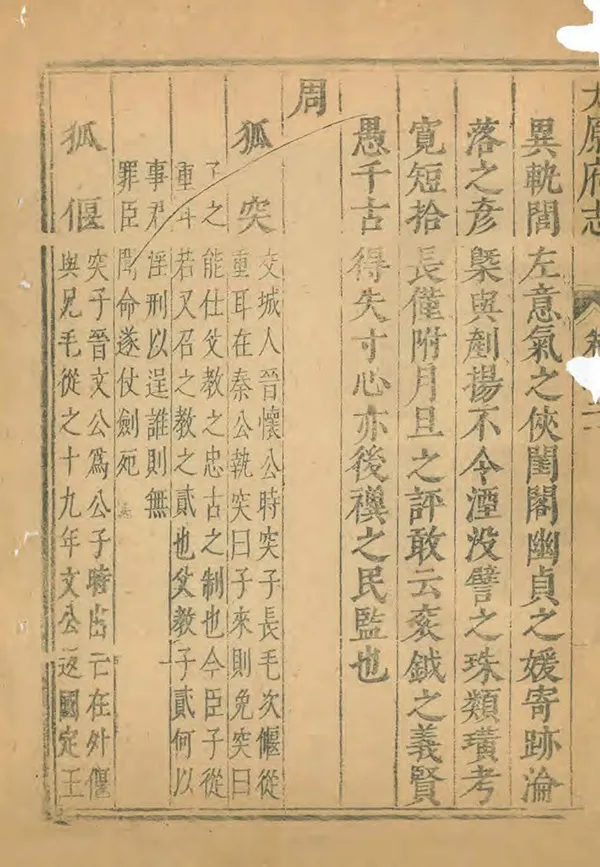 原府志
異軌閭左意氣之俠閨閣幽貞之媛寄跡淪
落之彥槩與剷揚不今湮没譬之珠纇璜考
寛短拾長僅附月旦之評敢云衮鉞之義賢
愚千古得失寸心亦後禩之民監也
周
狐突
交城人晉懷公時突子長毛次偃從
重耳在秦公執突曰子來則免突曰
子之能仕父教之忠古之制也今臣子從
重耳若又召之教之貳也父教子貳何以
事君淫刑以逞誰則無
罪臣聞命遂仗劍死
狐偃
突子晉文公爲公子時出亡在外偃
與兄毛從之十九年文公返國定王